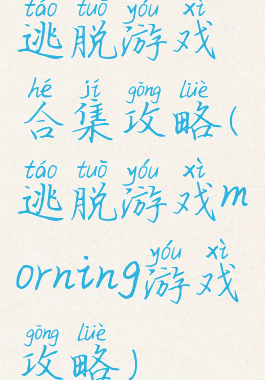 táo tuō yóu xì
逃脱游戏
hé jí gōng lüè
合集攻略(
táo tuō yóu xì
逃脱游戏m
yóu xì
orning游戏
gōng lüè
攻略)